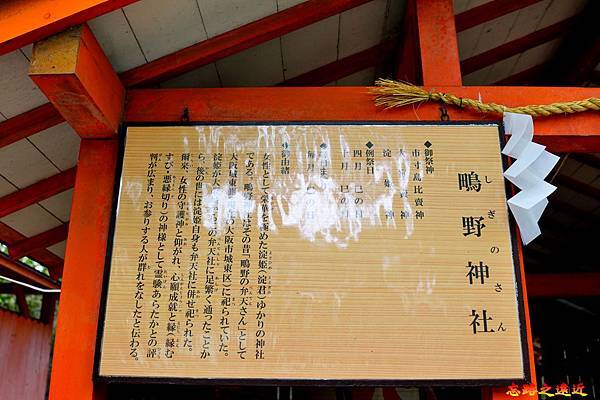 鴫野神社
しぎのさん
◆御祭神
市杵島比賣神
淀姫神
◆例祭日
四月 巳の日
十月 巳の日
◆御由緒
女性として栄華を極めた淀姫(淀君)ゆかりの神社
である。鴫野神社はその昔「鴫野の弁天さん」として
大阪城東(大阪市城東区)に祀られていた。
淀姫が大の弁天社に足繁く通ったことか
ら、後の世には淀姫自身も弁天社に併せ祀られた。
爾来、女性の守護神と仰がれ、心願成就と縁(縁む
すび・悪縁切り)の神様として霊験あらたかとの評
判が広まり、お参りする人が群れをなしたと伝わる。
忘之遠近